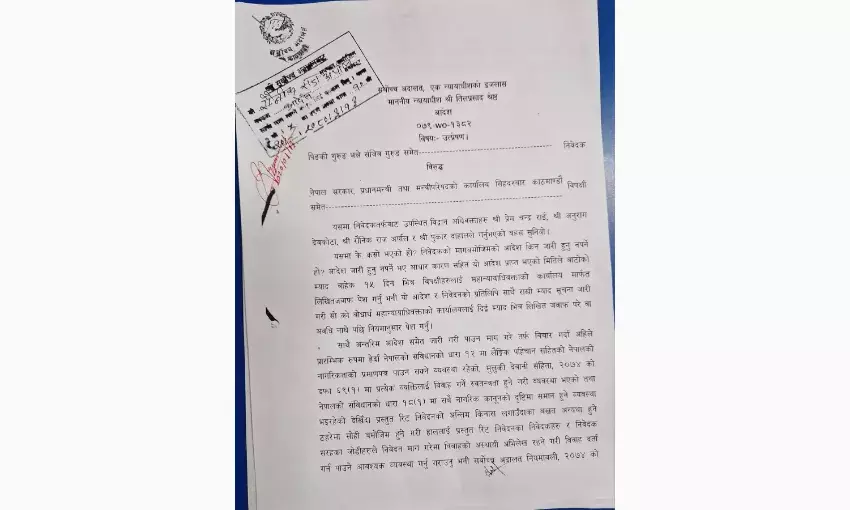 सर्वोच्च अदालत
सर्वोच्च अदालत, एक न्यायाधीशको इजलास
माननीय न्यायाधीश श्री तिलप्रसाद श्रेष्ठ
आदेश
०७९-WO-१३८२
विषयः- उत्प्रेषण।
पिङकी गुरुङ भन्ने संजिव गुरुङ समेत---------- निवेदक
विरुद्ध
नेपाल सरकार, प्रधानमन्त्री तथा मन्त्रीपरिषदको कार्यालय सिंहदरबार काठमाण्डौं
समेत---------- विपक्षी
यसमा निवेदकतर्फबाट उपस्थित विद्वान अधिवक्ताहरू श्री प्रेम चन्द्र राई, श्री अनुराग
देवकोटा, श्री रौनिक राज अर्याल र श्री पुकार दाहालले गर्नुभएको बहस सुनियो।
यसमा के कसो भएको हो? निवेदकको मागबमोजिमको आदेश किन जारी हुनु नपर्ने
हो? आदेश जारी हुनु नपर्ने भए आधार कारण सहित यो आदेश प्राप्त भएको मितिले बाटोको
म्याद बाहेक १५ दिन भित्र विपक्षीहरूलाई महान्यायाधिवक्ताको कार्यालय मार्फत
लिखितजवाफ पेश गर्नु भनी यो आदेश र निवेदनको प्रतिलिपि साथै राखी म्याद सूचना जारी
गरी सो को बोधार्थ महान्यायाधिवक्ताको कार्यालयलाई दिई म्याद भित्र लिखित जवाफ परे वा
अवधि नाघे पछि नियमानुसार पेश गर्नु।
साथै अन्तरिम आदेश समेत जारी गरी पाउन माग गरे तर्फ विचार गर्दा अहिले
प्रारम्भिक रूपमा हेर्दा नेपालको संविधानको धारा १२ मा लैङ्गिक पहिचान सहितको नेपालको
नागरिकताको प्रमाणपत्र पाउन सक्ने व्यवस्था रहेको, मुलुकी देवानी संहिता, २०७४ को
दफा ६९(१) मा प्रत्येक व्यक्तिलाई विवाह गर्ने स्वतन्त्रता हुने गरी व्यवस्था भएको तथा
नेपालको संविधानको धारा १८(१) मा सबै नागरिक कानूनको दृष्टिमा समान हुने व्यवस्था
भइरहेको देखिँदा प्रस्तुत रिट निवेदनको अन्तिम किनारा लगाउँदाका बखत अन्यथा हुने
ठहरेमा सोही बमोजिम हुने गरी हाललाई प्रस्तुत रिट निवेदनका निवेदकहरू र निवेदक
सरहका जोडीहरूले निवेदन माग गरेमा विवाहको अस्थायी अभिलेख रहने गरी विवाह दर्ता
गर्न पाउने आवश्यक व्यवस्था गर्नु गराउनु भनी सर्वोच्च अदालत नियमावली, २०७४ को